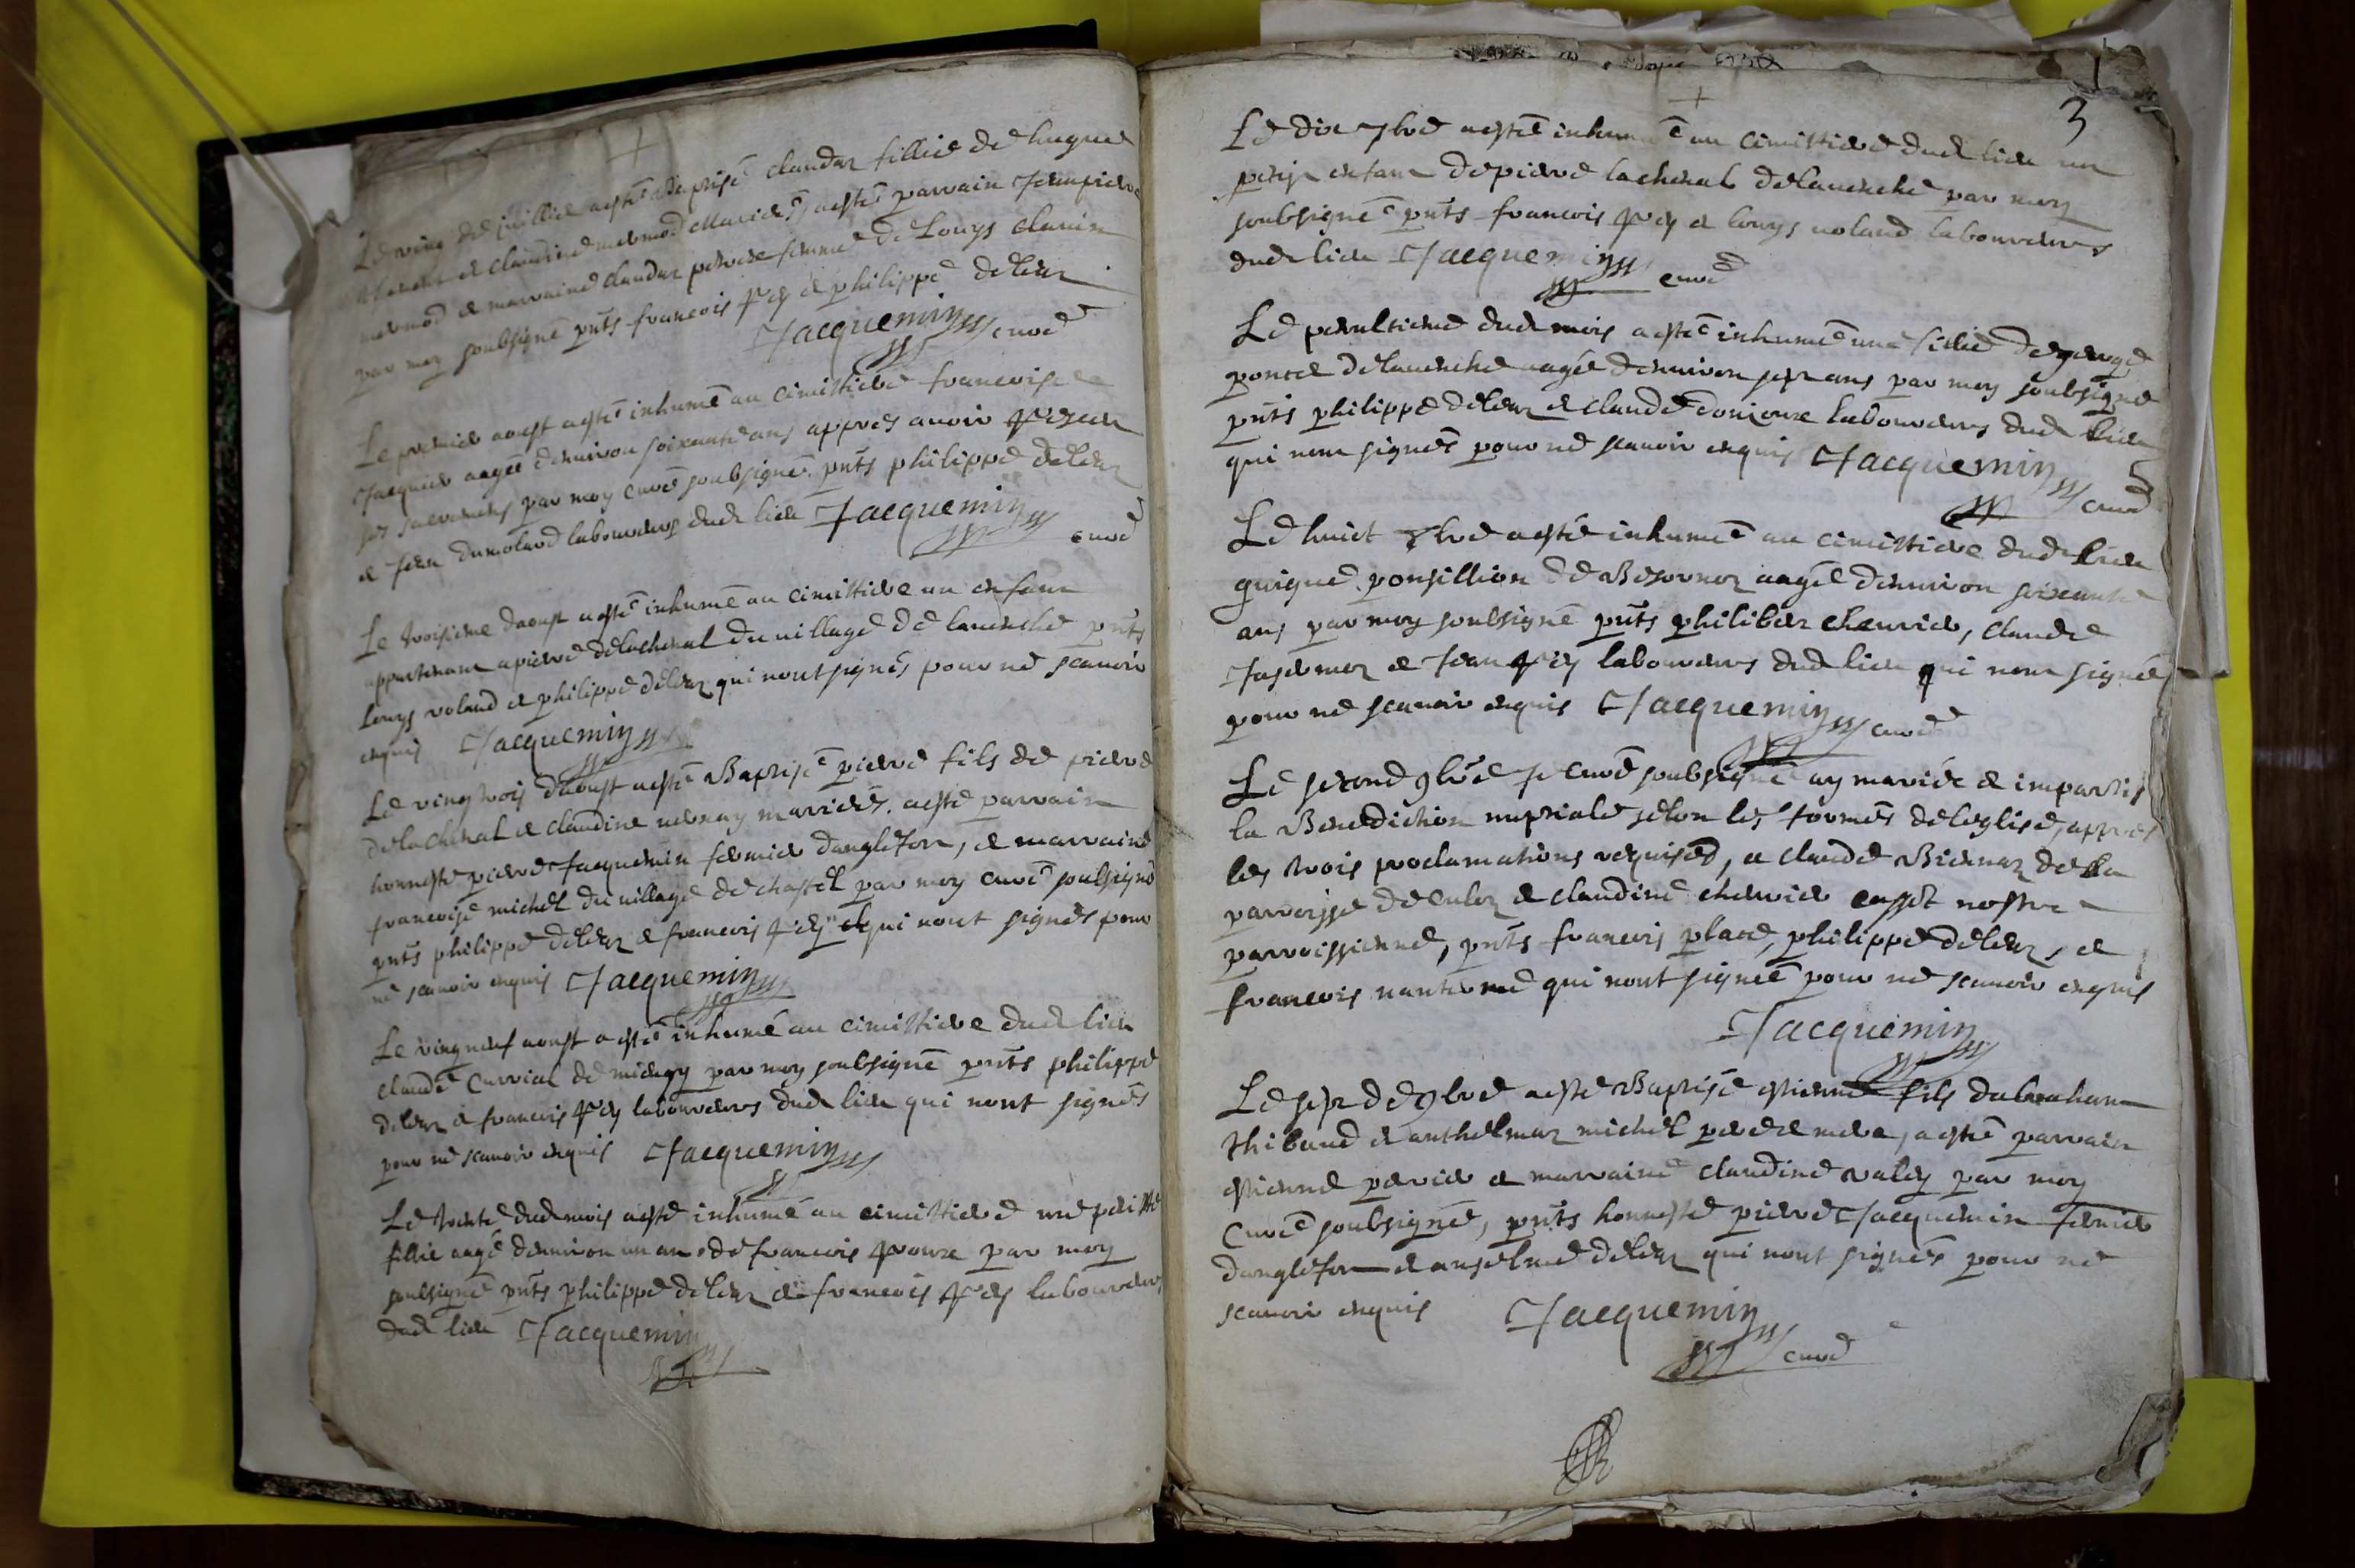 Le ving de juillie a esté Baptisé claudaz fillie de hugue
et claudine mermod Mariés, a esté parrain Jeanpierre
mermod et marraine claudaz femme de Louys
par moy soubsigné pnts francois frey et philippe deleaz
Jacquemin curé
Le premier aoust a esté inhumé au cimistiere francoise
Jacquier aagée denuiron soixante ans appres auoir receu
ses sacremens par moy curé soubsigné pnts philippe deleaz
et Jean dumolard laboureurs dud lieu Jacquemin
curé
Le troisieme daoust a esté inhumé au cimistiere un enfant
appartenant a pierre delachenal du uillage de lauenche pnts
Louys volaud et philippe deleaz qui nont signés pour ne scauoir
enquis Jacquemin
Le ving trois daoust a esté Baptisé pierre fils de pierre
delachenal et claudine mariés. a esté parrain
honneste pierre Jacquemin fermier danglefort, et marraine
francoise michel du uillage de chastel par moy curé soubsigné
pnts philippe deleaz et francois frey qui nont signés pour
ne scauoir enquis Jacquemin
Le vingneuf aoust a esté inhumé au cimistiere dud lieu
claude Curvial de par moy soubsigné pnts philippe
deleaz et francois frey laboureurs dud lieu qui nont signés
pour ne scauoir enquis Jacquemin
Le trente dud mois a esté inhumé au cimistiere une petitte
fillie aagé denuiron un an de francois par moy
soubsigné pnts philippe deleaz et francois frey laboureurs
dud lieu Jacquemin
3
Le dix 7bre a esté inhumé au cimistiere dud lieu un
petit enfant de pierre lachenal de lauenche par moy
soubsigné pnts francois frey et louys uolaud laboureurs
dud lieu Jacquemin curé
Le penultieme dud mois a esté inhumé une fillie de george
poncet de lauenche aagée denuiron sept ans par moy soubsigné
pnts philippe deleaz et claude laboureurs dud lieu
qui nont signés pour ne scauoir enquis Jacquemin
curé
Le huict 8bre a esté inhumé au cimistiere dud lieu
guigue ponsillion de aagée denuiron soixante
ans par moy soubsigné pnts philibert cheurier, claude
et Jean frey laboureurs dud lieu qui nont signés
pour ne scauoir enquis Jacquemin curé
Le second 9bre Je curé soubsigné ay mariée et impartis
la Benediction nuptiale selon les formes de leglise, appres
les trois proclamations requises, a claude Biennaz de la
parroisse de culoz et claudine cheurier nostre
parroissienne, pnts francois place, philippe deleaz, et
francois nanterme qui nont signée pour ne scauoir enquis
Jacquemin
Le sept de 9bre a esté Baptisé estienne fils dabraham
thibaud et anthelmaz michel pere et mere, a esté parrain
estienne perrier et marraine claudine valey par moy
Curé soubsigné, pnts honneste pierre Jacquemin fermier
danglefort et anselme deleaz qui nont signés pour ne
scauoir enquis Jacquemin
curé